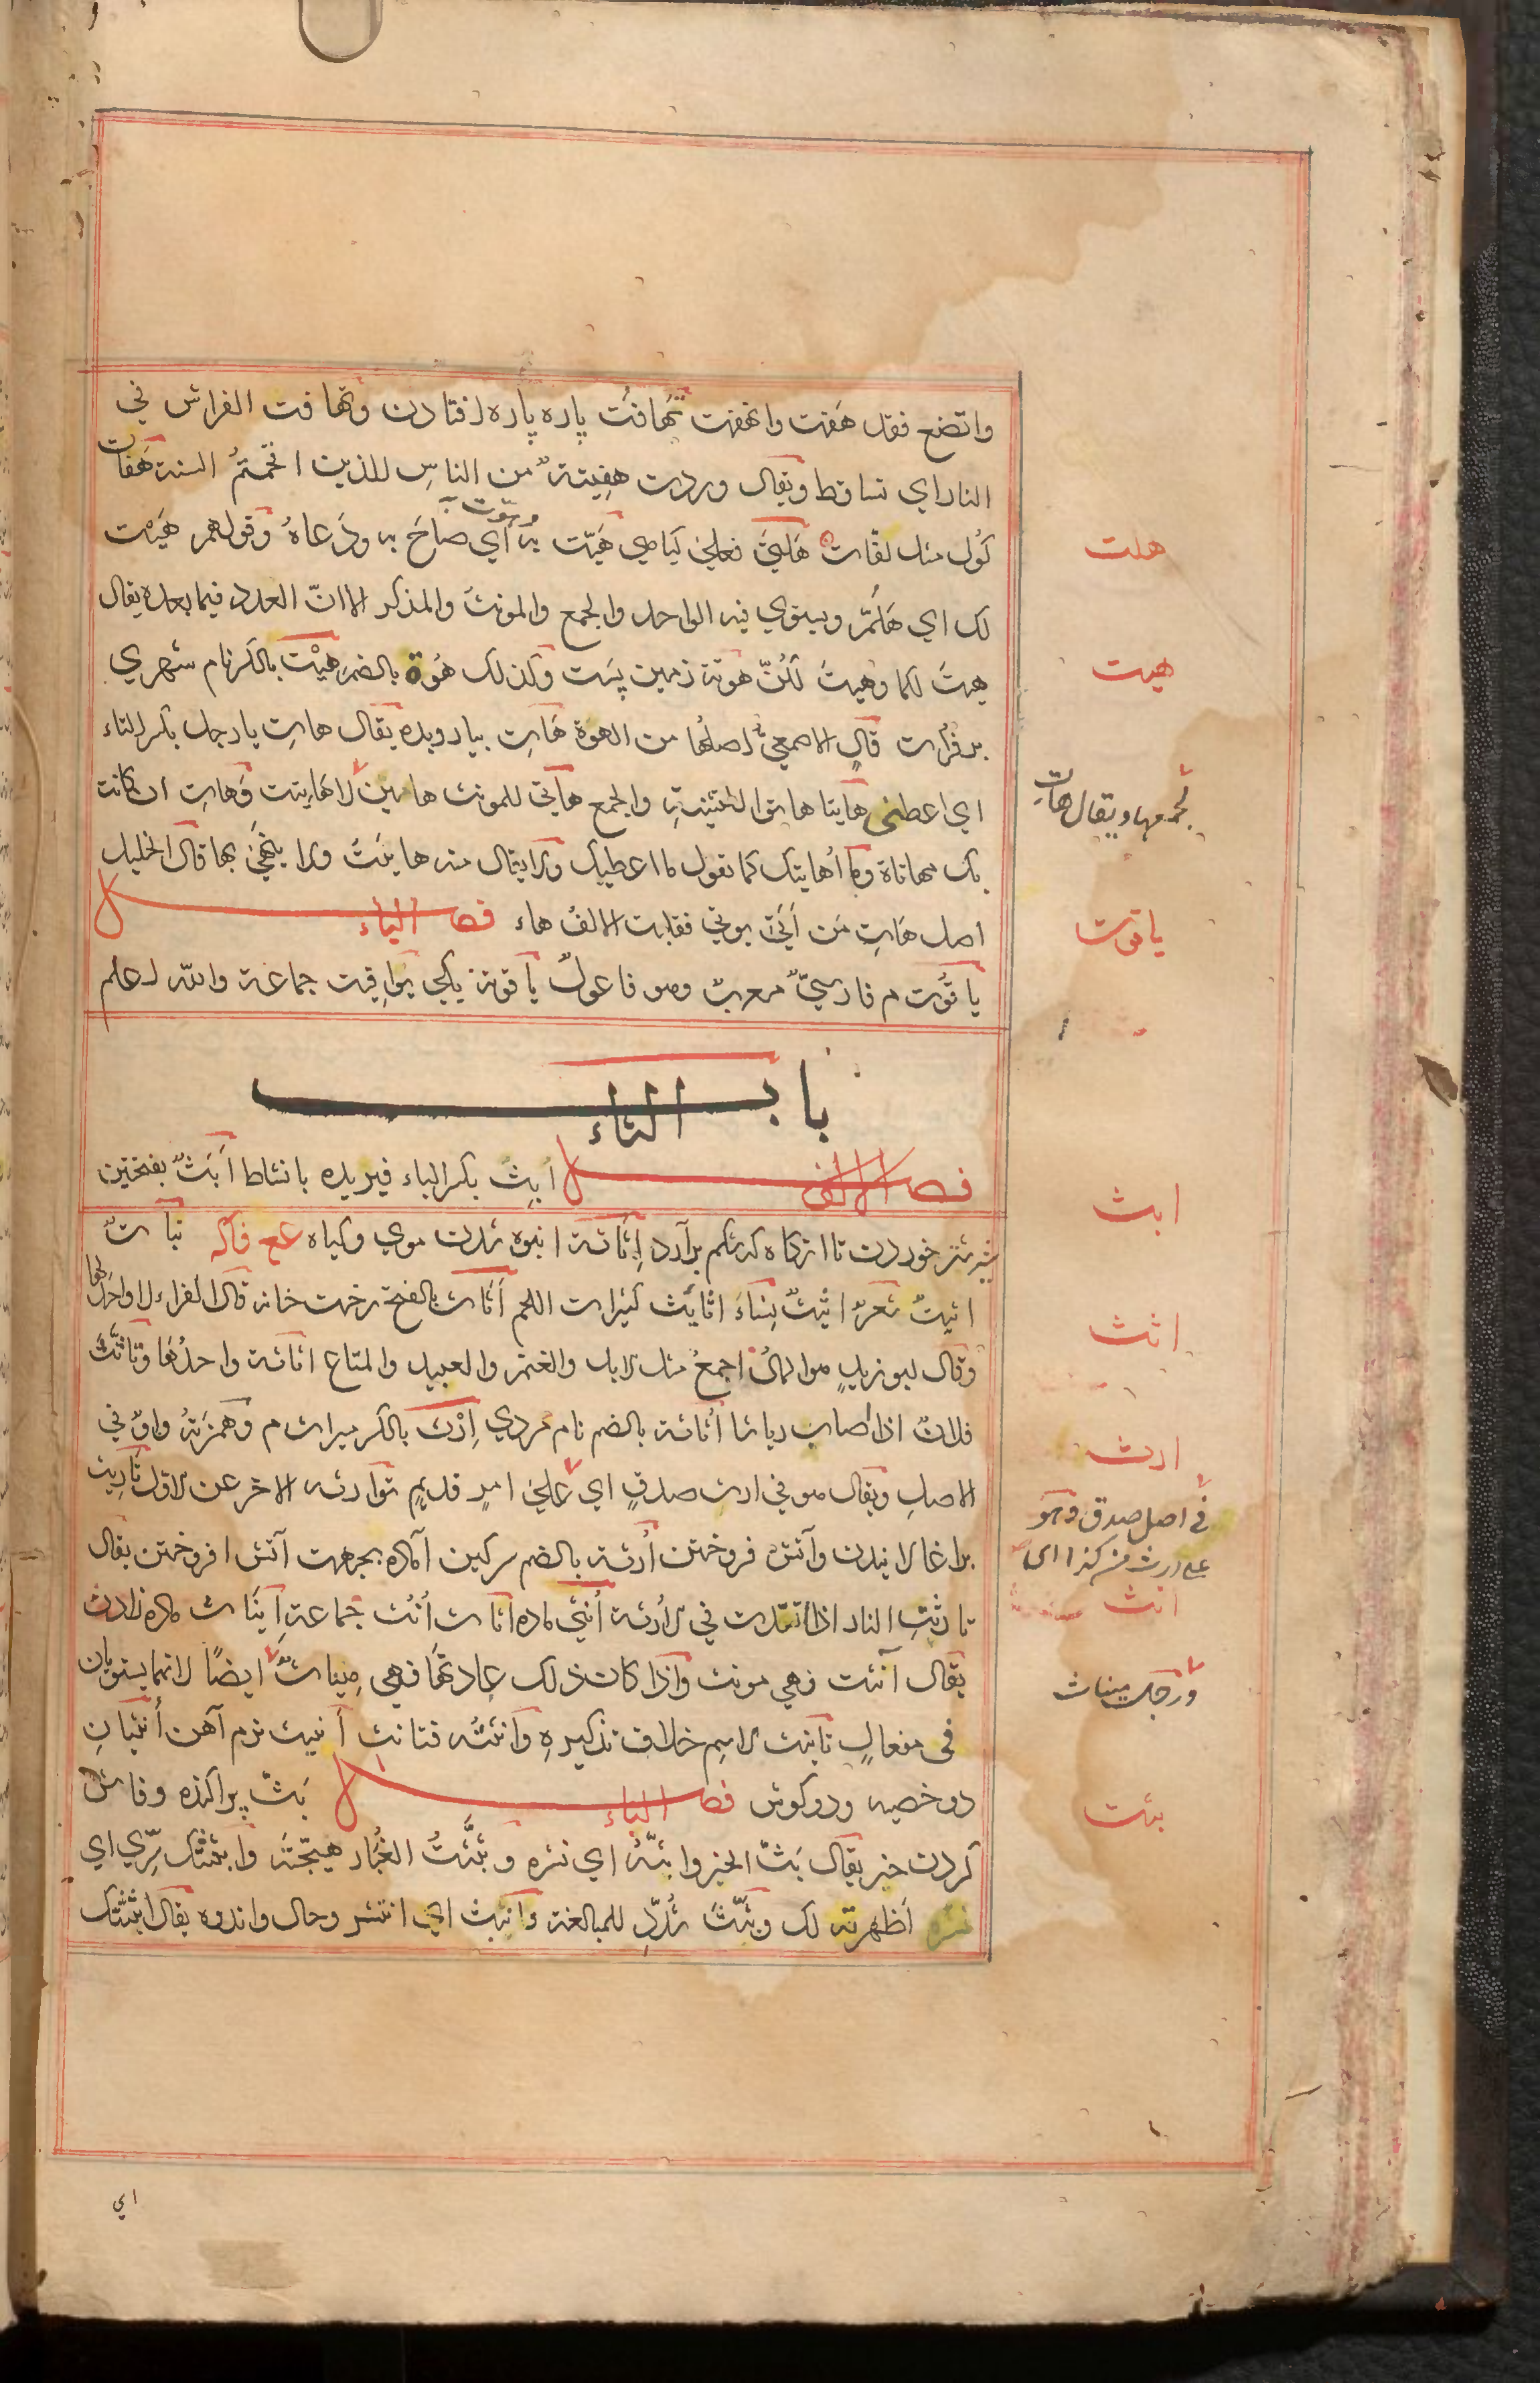 واتضع فقد هَفت وانهفت تَهافُت پاره پاره افتادن وتهافت الفراش في
النار اي تساقط ويقال وردت هفِيتةٌ من الناس للذين اقحمتهُم السنة هَفات
گول مثل لفات هَلتى فعلى گیاهی هَيّت به وهوّت به اي صاحَ به ودَعاهُ وقولهم هَيْت
لك اي هَلُمَّ ويستوي فيه الواحد والجمع والمونث والمذكر الا ان العدد فيما بعده يقال
هيتَ لكما وهيتَ لكنّ هوتة زمین پست وكذلك هُوة بالضم هِيْت بالكسر نام شهري
بر فرات قال الاصمعيُّ اصلها من الهوة هَاتِ بیار وبده يقال هاتِ يا رجل بكسر التاء
اي اعطني هاتيا هاتوا للتثنية والجمع هاتي للمونث هاتين لا هاتيت وهاتِ ان كانت
بك مهاتاة وما أهاتيك كما تقول ما اعطيك ولا يقال منه هاتيتُ ولا ينهىَ بها قال الخليل
اصل هَاتِ من آتَى يوتي فقلبت الالفُ هاء فصل الياء
ياقُوت م فارسيٌّ معربٌ وهو فاعولٌ ياقوتة یکی يواقيت جماعة والله اعلم
باب الثاء
فصل الالف أبِثٌ بكسر الباء فیریده با نشاط أَبَثٌ بفتحتين
شیر شتر خوردن تا انگاه که شکم برآرد اَثَاثة انبوه شدن موی وگیاه عع فاكه نباتٌ
اثيثٌ شعرٌ اثيثٌ نساءَ اثايَث كثيرات اللحم أثاث بالفتح رخت خانه قال الفراء لا واحدَ لها
وقال ابو زيدٍ هو المالُ اجمعُ مثل الابل والغنم والعبيد والمتاع اثاثة واحدُها وتأثّثَ
فلانٌ اذا اصاب رياشا أثاثة بالضم نام مردي اِرْث بالكسر میراث م وهمزتهُ واوٌ في
الاصلِ ويقال هو في ارث صدقٍ اي على امرٍ قديمٍ توارثه الاخر عن الاول تأرِيث
برآغالانیدن وآتش فروختن أُرثة بالضم سرگین آماده بجهت آتش افروختن يقال
تارثتِ النار اذا اتقدت في الأرثة أُنثى ماده اناث أُنُث جماعة اِيناث ماده زادن
يقال آنثت فهي مونث واذا كان ذلك عادتها فهي مِيناثٌ ايضًا لانهما يستويان
في مفعالٍ تانيث الاسم خلاف تذكيرهِ وانثتُه فتانث أنيث نرم آهن أنثيانِ
دو خصیه ودو گوش فصل الباء بَثّ پراکنده وفاش
کردن خبر يقال بَثّ الخبر وابثّهُ اي نشره وبثَّثتُ الغُبار هيّجته وابثثتُك سِرّي اي
نشره اَظهرته لك وبثّثَ شُدّد للمبالغة وانبثّ اي انتشر وحال واندوه يقال ابثثتك
اي
هلت
هيت
لجمعها ويقال هات
ياقوت
ابث
اثث
ارث
في اصل صدق وهو
على ارث من كذا اي
انث
ورجل ميناث
بثث